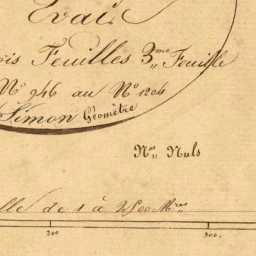 Evais
ois Feuilles 3me Feuille
No 946 au No 1204
Simon Géomètre
Nos Nuls
lle de 1 à 2500 Mres
200 300